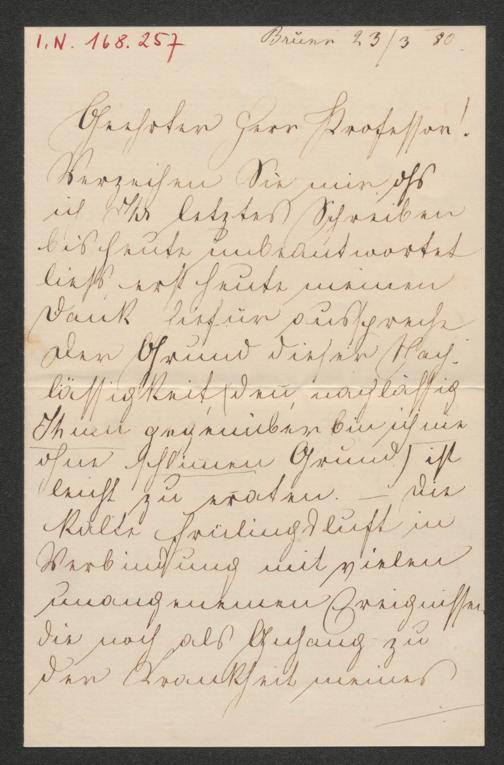 I.N. 168.257
Brünn 23/3 80.
Geehrter Herr Professor!
Verzeihen Sie mir dß
ich Ihr letztes Schreiben
bis heute unbeantwortet
ließ erst heute meinen
Dank hiefür ausspreche
Der Grund dieser Nach-
lässigkeit (den nachlässig
Ihnen gegenüber bin ich nie
ohne schlimmen Grund) ist
leicht zu eraten. – Die
kalte Früilingsluft in
Verbindung mit vielen
unangenemen Ereignissen
die noch als Anhang zu
der Krankheit meines